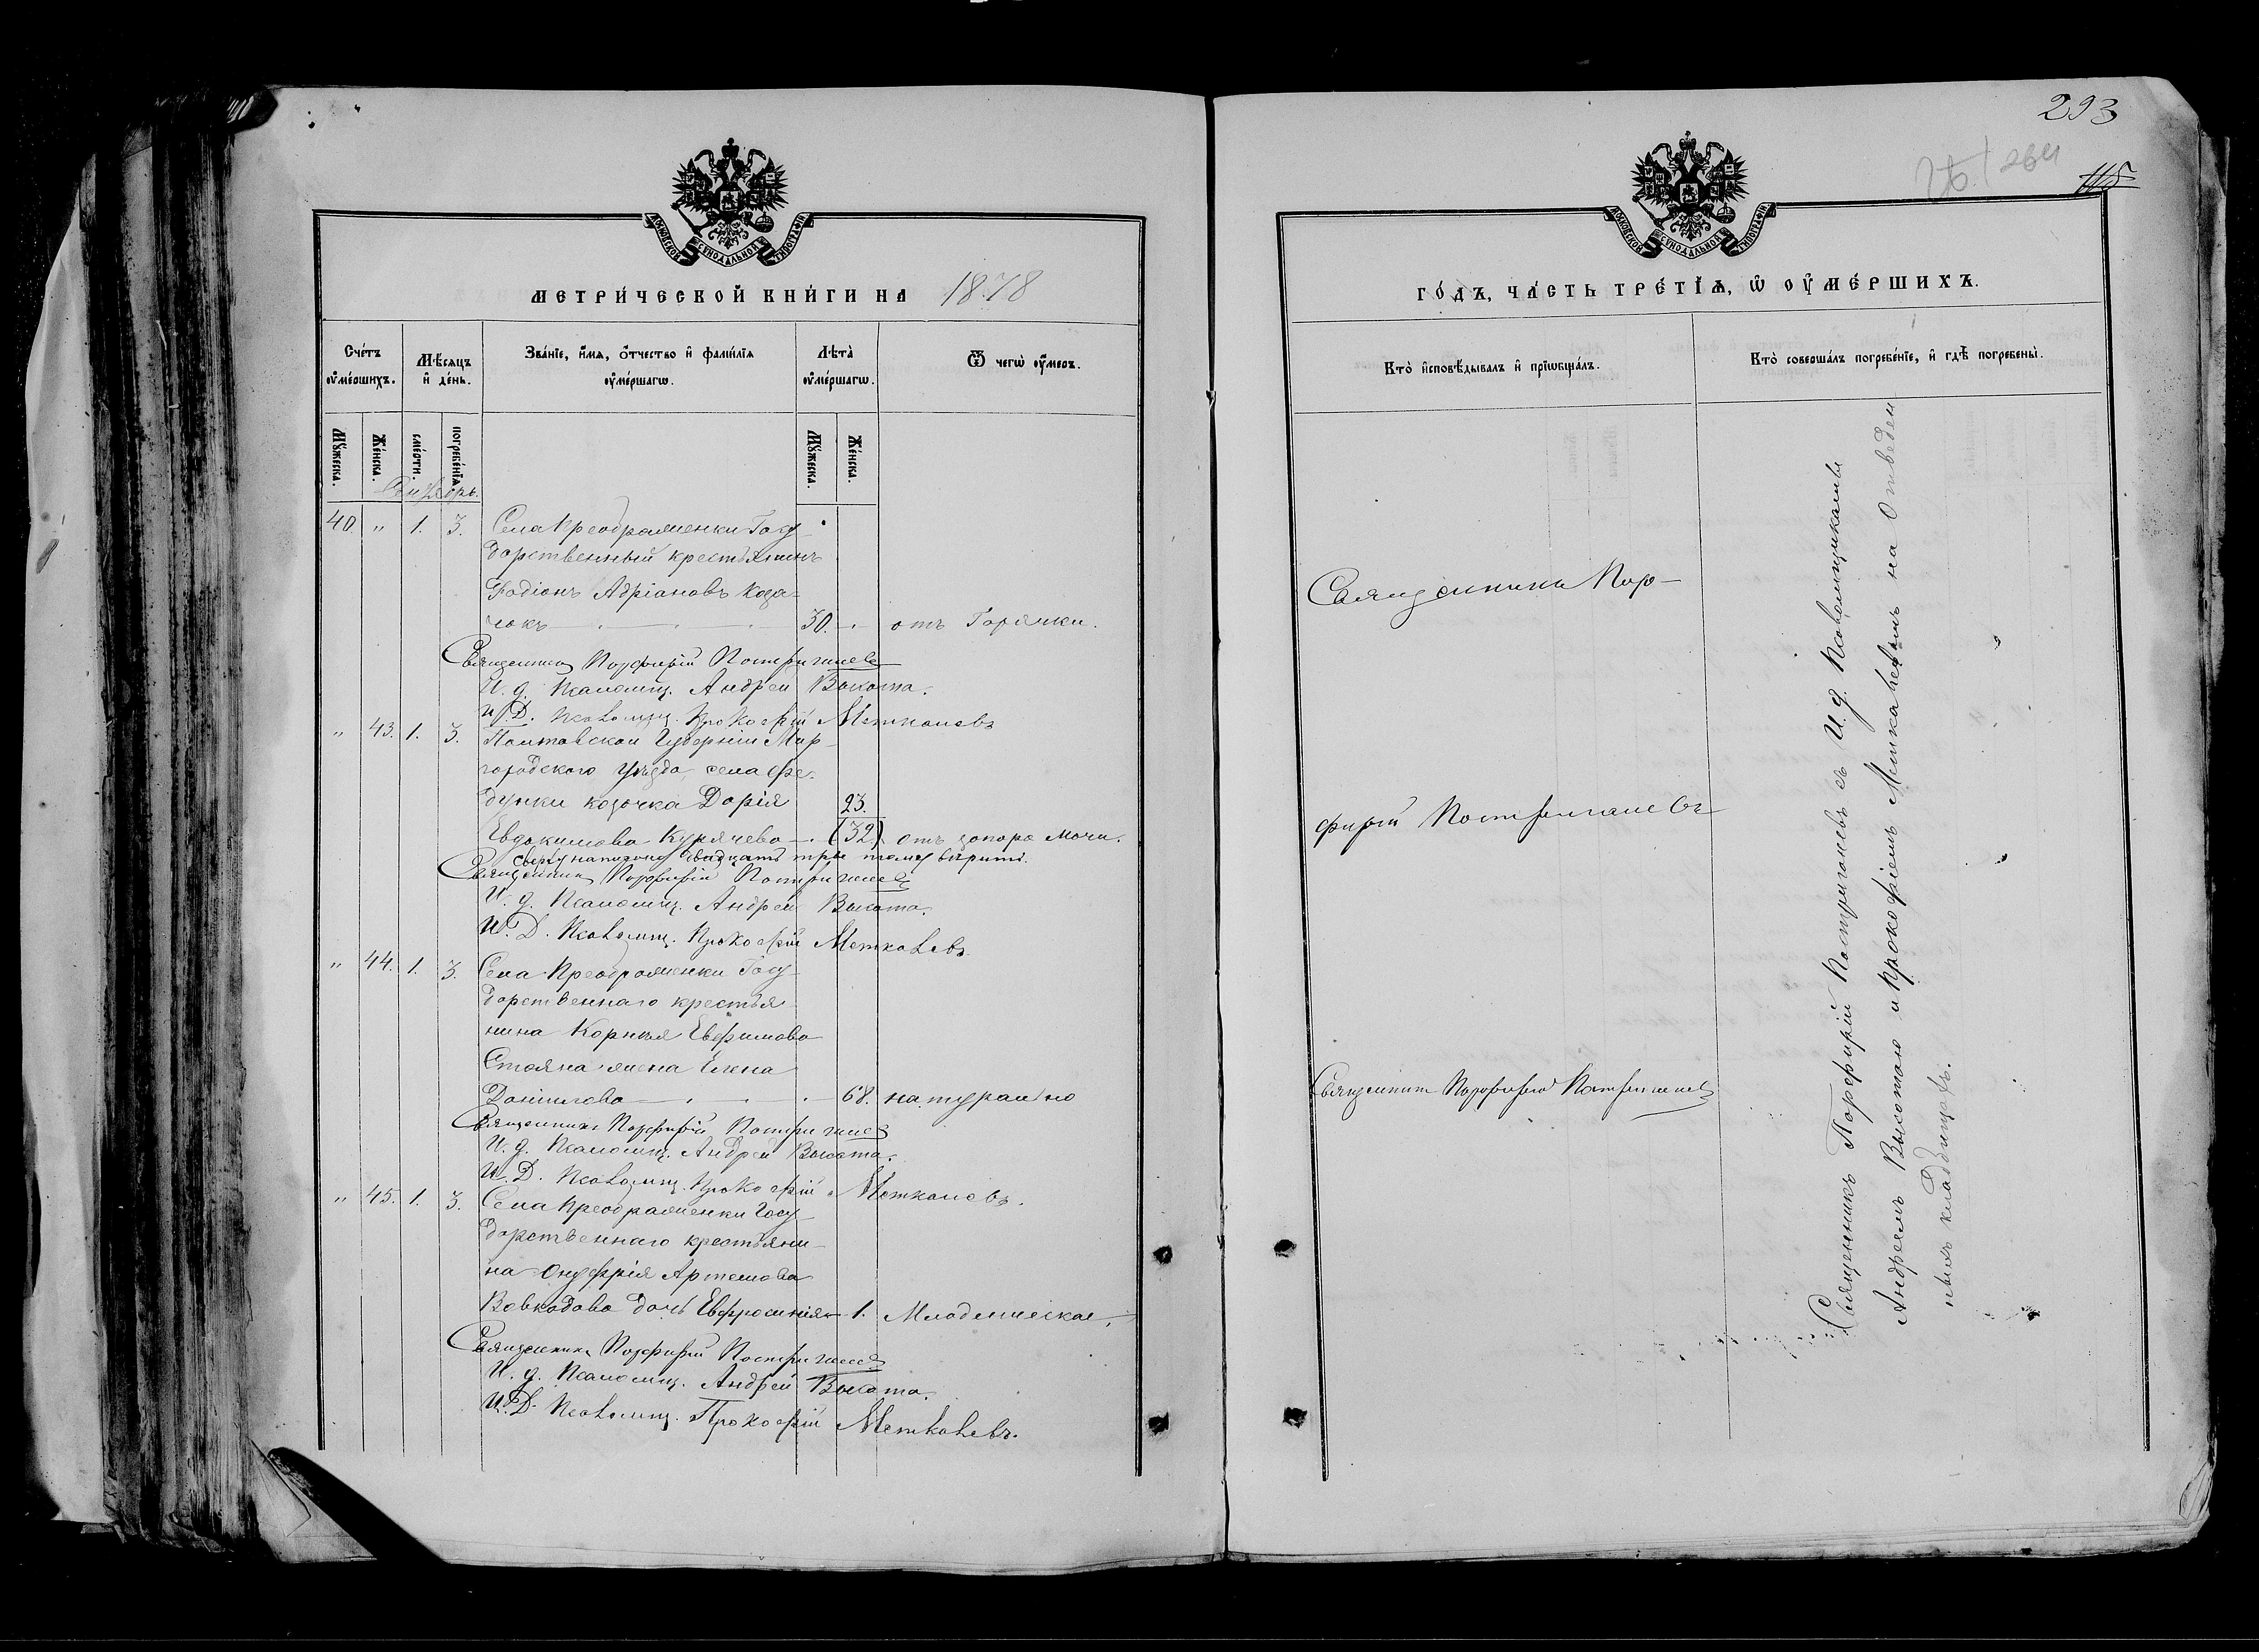 293
264
115
МОСКОВСКОЙ СѴНОДАЛЬНОЙ ТИПОГРАФІИ
МЕТРИ́ЧЕСКОЙ КНИ́ГИ НА 1878
Сче́тъ оу҆ме́ршихъ.
Мѣ́сяцъ и҆ де́нь.
Зва́нїе, и҆́мѧ, ѻ҆́тчество и҆ фами́лїѧ оу҆ме́ршагѡ.
Лѣта̀ оу҆ме́ршагѡ.
Ѿ чегѡ̀ оу҆́меръ.
Мꙋ́жеска.
Же́нска.
сме́рти.
погребе́нїѧ.
Мꙋ́жеска.
Же́нска.
40. " 1. 3. Села Преображенки Госу-
дарственный крестьянинъ
Родіонъ Адріановъ Коза-
чокъ 30. - отъ Горячки.
Священникъ Порфирій Постригачевъ
И. д. Псаломщ. Андрей Высота.
И. Д. Псаломщ. Прокофій Меткалевъ
" 43. 1. 3. Полтавской Губерніи Мир-
городского уѣзда, села Фе-
дунки козочка Дарія 23.
Евдокимова Курячева - (32) отъ запора мочи.
сверху написаному двадцать три тому вѣрить.
Священникъ Порфирій Постригачевъ
И. д. Псаломщ. Андрей Высота.
И. Д. Псаломщ. Прокофій Меткалевъ
" 44. 1. 3. Села Преображенки Госу-
дарственнаго крестья
нина Корнея Евфимова
Стояна жена Елена
Данилова 68. натурально
Священникъ Порфирій Постригачевъ
И. д. Псаломщ. Андрей Высота.
И. Д. Псаломщ. Прокофій Меткалевъ.
" 45. 1. 3. Села Преображенки Госу-
дарственнаго крестьяни-
на Онуфрія Артемова
Вовкодава дочь Евфросинія 1. Младенческая.
Священникъ Порфирій Постригачевъ
И. д. Псаломщ. Андрей Высота.
И. Д. Псаломщ. Прокофій Меткалевъ.
МОСКОВСКОЙ СѴНОДАЛЬНОЙ ТИПОГРАФІИ
ГО́ДЪ, ЧА́СТЬ ТРЕ́ТЇѦ, Ѡ҆ ОУ҆МЕ́РШИХЪ.
Кто̀ и҆сповѣ́дывалъ и҆ прїѡбща́лъ.
Кто̀ соверша́лъ погребе́нїе, и҆ гдѣ̀ погребены̀.
Священникъ Пор-
фирій Постригачевъ
Священникъ Порфирій Постригачевъ
Священникъ Порфирій Постригачевъ съ И. д. Псаломщиками
Андреемъ Высотою и Прокофіемъ Меткалевымъ на Отведен
ныхъ кладбищахъ.